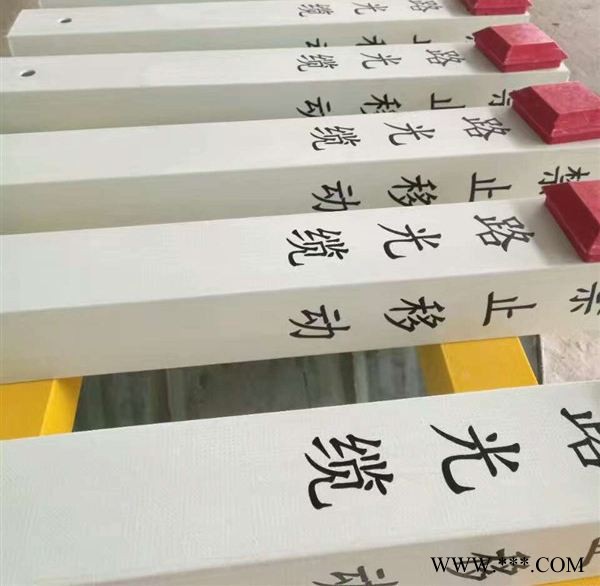 路光缆
止移动
路光缆
禁止移动
路光缆
禁止移动
路光缆
禁止移动
路光缆
移动
WWW.***.COM